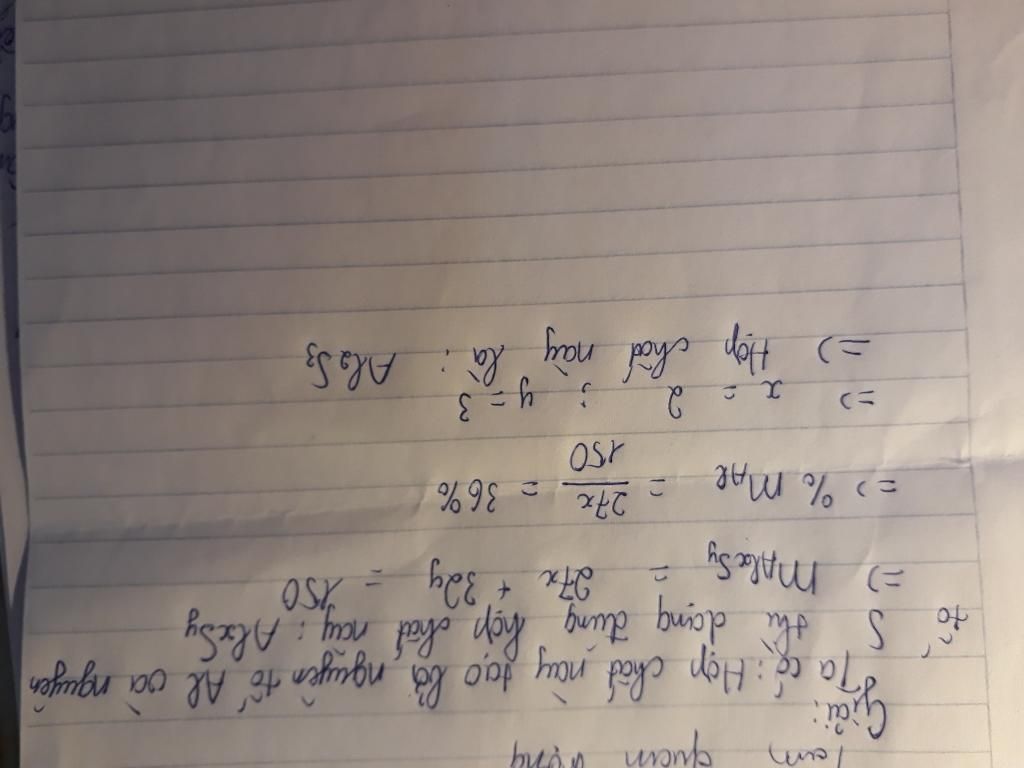 quan trọng
Giải:
Ta có: Hợp chất này tạo bởi nguyên tố Al và nguyên
tố S thì dạng dung hợp chất này: AlxSy
=> MAlxSy = 27x + 32y = 150
=> % MAl = 27x/150 = 36%
=> x = 2 ; y = 3
=> Hợp chất này là: Al2S3